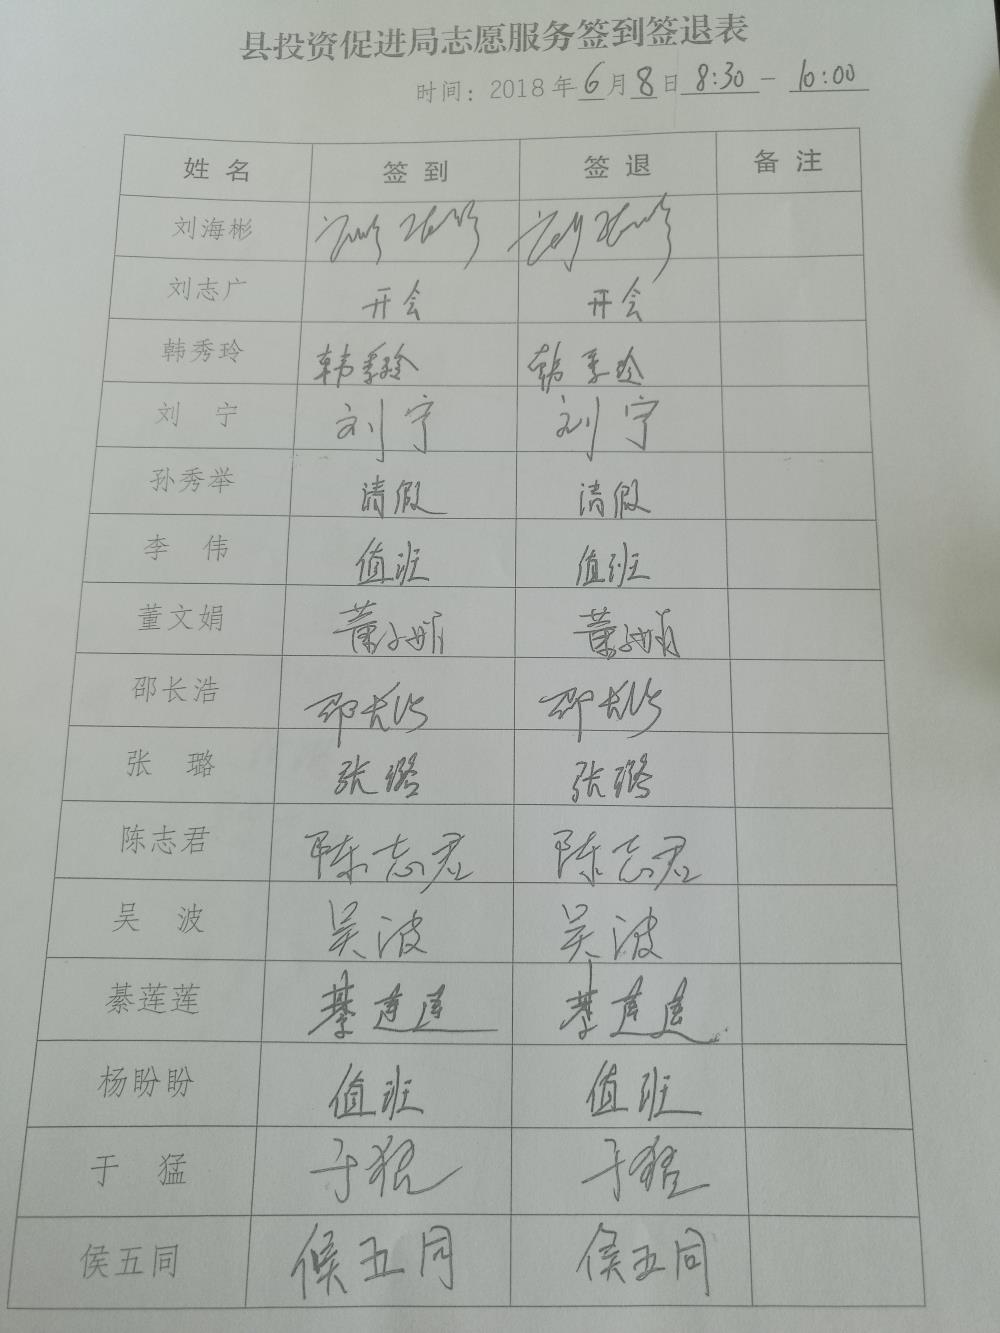 县投资促进局志愿服务签到签退表
时间：2018年6月8日8:30－10:00
姓名 签到 签退 备注
刘海彬
刘志广 开会 开会
韩秀玲 韩秀玲 韩秀玲
刘宁 刘宁 刘宁
孙秀举 请假 请假
李伟 值班 值班
董文娟 董文娟 董文娟
邵长浩 邵长浩 邵长浩
张璐 张璐 张璐
陈志君 陈志君 陈志君
吴波 吴波 吴波
綦莲莲 綦莲莲 綦莲莲
杨盼盼 值班 值班
于猛 于猛 于猛
侯五同 侯五同 侯五同